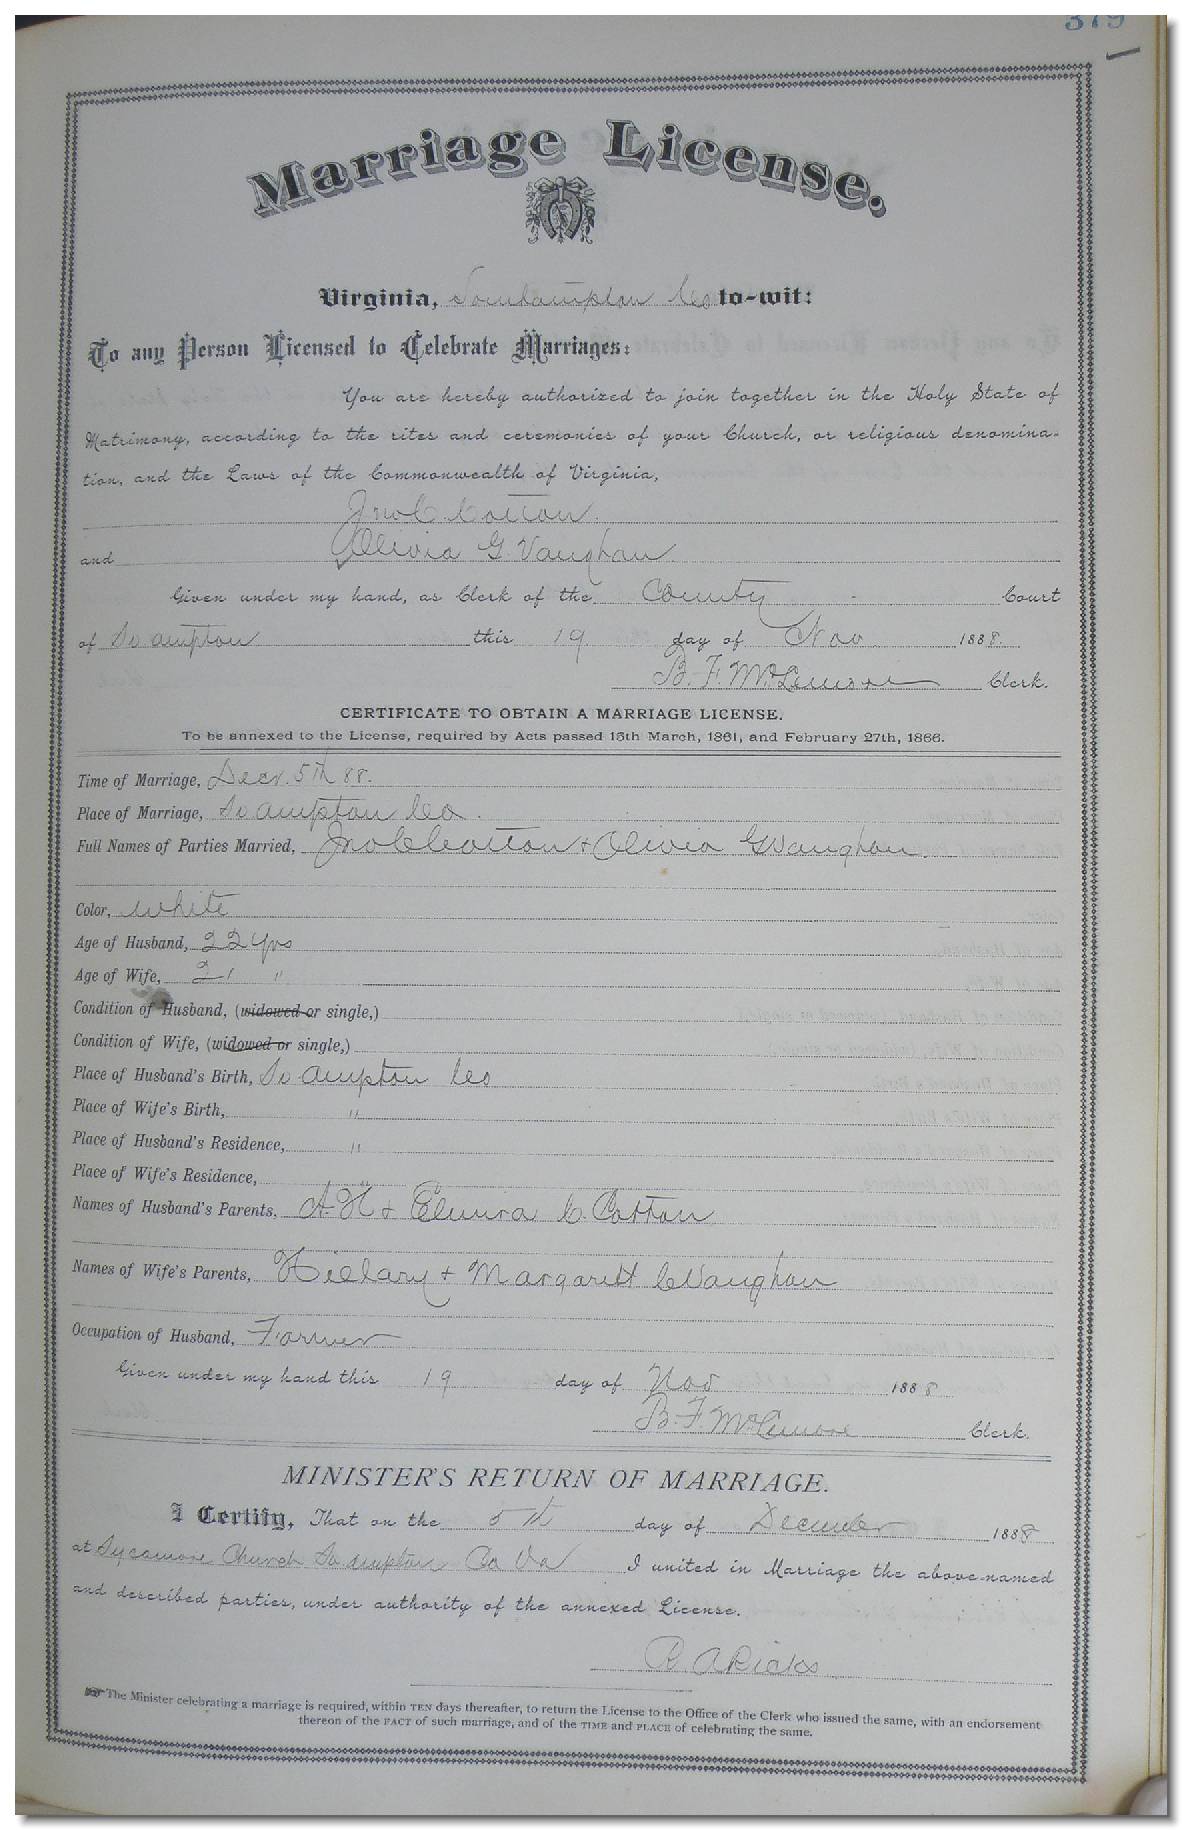 379
Marriage License.
Virginia, Southampton Co to-wit:
To any Person Licensed to Celebrate Marriages:
You are hereby authorized to join together in the Holy State of
Matrimony, according to the rites and ceremonies of your Church, or religious denomina-
tion, and the Laws of the Commonwealth of Virginia,
Jno C Cotton.
and Olivia G. Vaughan
Given under my hand, as Clerk of the County Court
of So ampton this 19 day of Nov 1888.
B. F. McLemore Clerk.
CERTIFICATE TO OBTAIN A MARRIAGE LICENSE.
To be annexed to the License, required by Acts passed 15th March, 1861, and February 27th, 1866.
Time of Marriage, Decr. 5th 88.
Place of Marriage, So ampton Co.
Full Names of Parties Married, Jno C Cotton & Olivia G Vaughan
Color, White
Age of Husband, 22 yrs
Age of Wife, 21 "
Condition of Husband, (widowed or single,)
Condition of Wife, (widowed or single,)
Place of Husband's Birth, So ampton Co
Place of Wife's Birth, "
Place of Husband's Residence, "
Place of Wife's Residence, "
Names of Husband's Parents, A. H & Elmira C. Cotton
Names of Wife's Parents, Hillary & Margarett C Vaughan
Occupation of Husband, Farmer
Given under my hand this 19 day of Nov 1888
B. F. McLemore Clerk.
MINISTER'S RETURN OF MARRIAGE.
I Certify, That on the 5th day of December 1888
at Sycamore Church So ampton Co Va I united in Marriage the above-named
and described parties, under authority of the annexed License.
R A Ricks
The Minister celebrating a marriage is required, within TEN days thereafter, to return the License to the Office of the Clerk who issued the same, with an endorsement
thereon of the FACT of such marriage, and of the TIME and PLACE of celebrating the same.